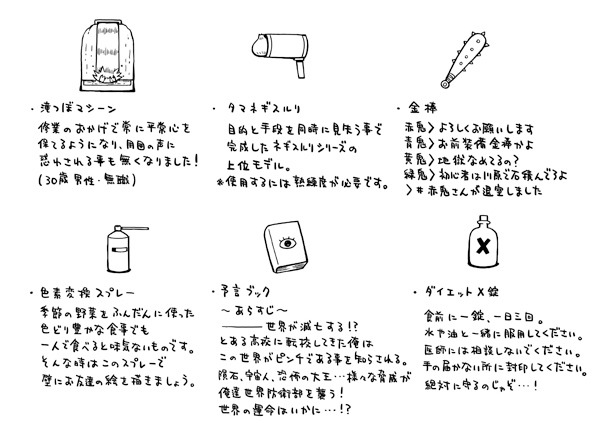 ・滝つぼマシーン
修業のおかげで常に平常心を
保てるようになり、周囲の声に
惑わされる事も無くなりました！
(30歳 男性・無職)
・タマネギスルリ
目的と手段を同時に見失う事で
完成したネギスルリシリーズの
上位モデル。
※使用するには熟練度が必要です。
・金棒
赤鬼＞よろしくお願いします
青鬼＞お前装備金棒かよ
黄鬼＞地獄なめてるの？
緑鬼＞初心者は川原で石積んでろよ
＞＃赤鬼さんが退室しました
・色素変換スプレー
季節の野菜をふんだんに使った
色どり豊かな食事でも
一人で食べると味気ないものです。
そんな時はこのスプレーで
壁にお友達の絵を描きましょう。
・予言ブック
〜あらすじ〜
――世界が滅亡する!?
とある高校に転校してきた俺は
この世界がピンチである事を知らされる。
隕石、宇宙人、恐怖の大王…様々な脅威が
俺達世界防衛部を襲う！
世界の運命はいかに…!?
・ダイエットX錠
X
食前に一錠、一日三回。
水や油と一緒に服用してください。
医師には相談しないでください。
手の届かない所に封印してください。
絶対に守るのじゃぞ…！